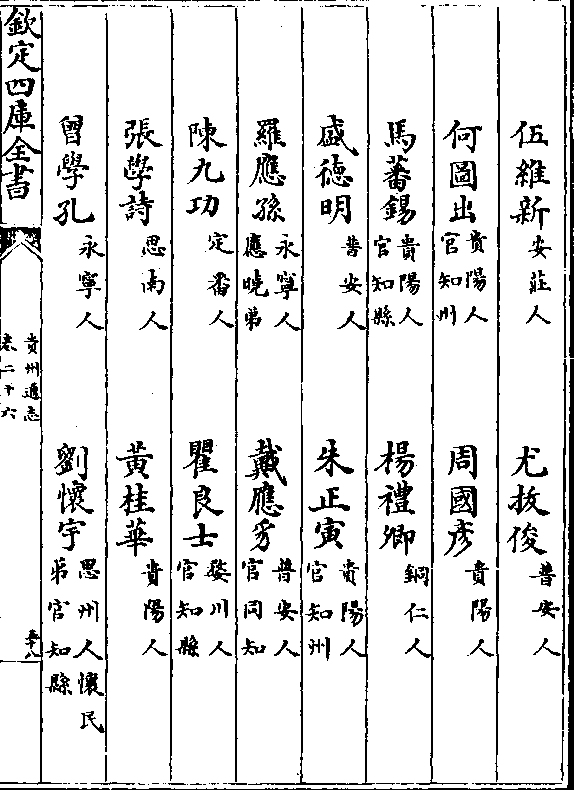 伍維新 安莊人 尤拔俊 普安人
何圖出 貴陽人官知州 周國彥 貴陽人
馬蕃錫 貴陽人官知縣 楊禮卿 銅仁人
盛德明 普安人 朱正寅 貴陽人官知州
羅應孫 永寧人應曉弟 戴應 普安人官同知
陳九功 定番人 瞿良士 婺川人官知縣
張學詩 思南人 黃桂華 貴陽人
曾學孔 永寧人 劉懷宇 思州人懷民弟官知縣
欽定四庫全書 貴州通志卷二十六 五十八